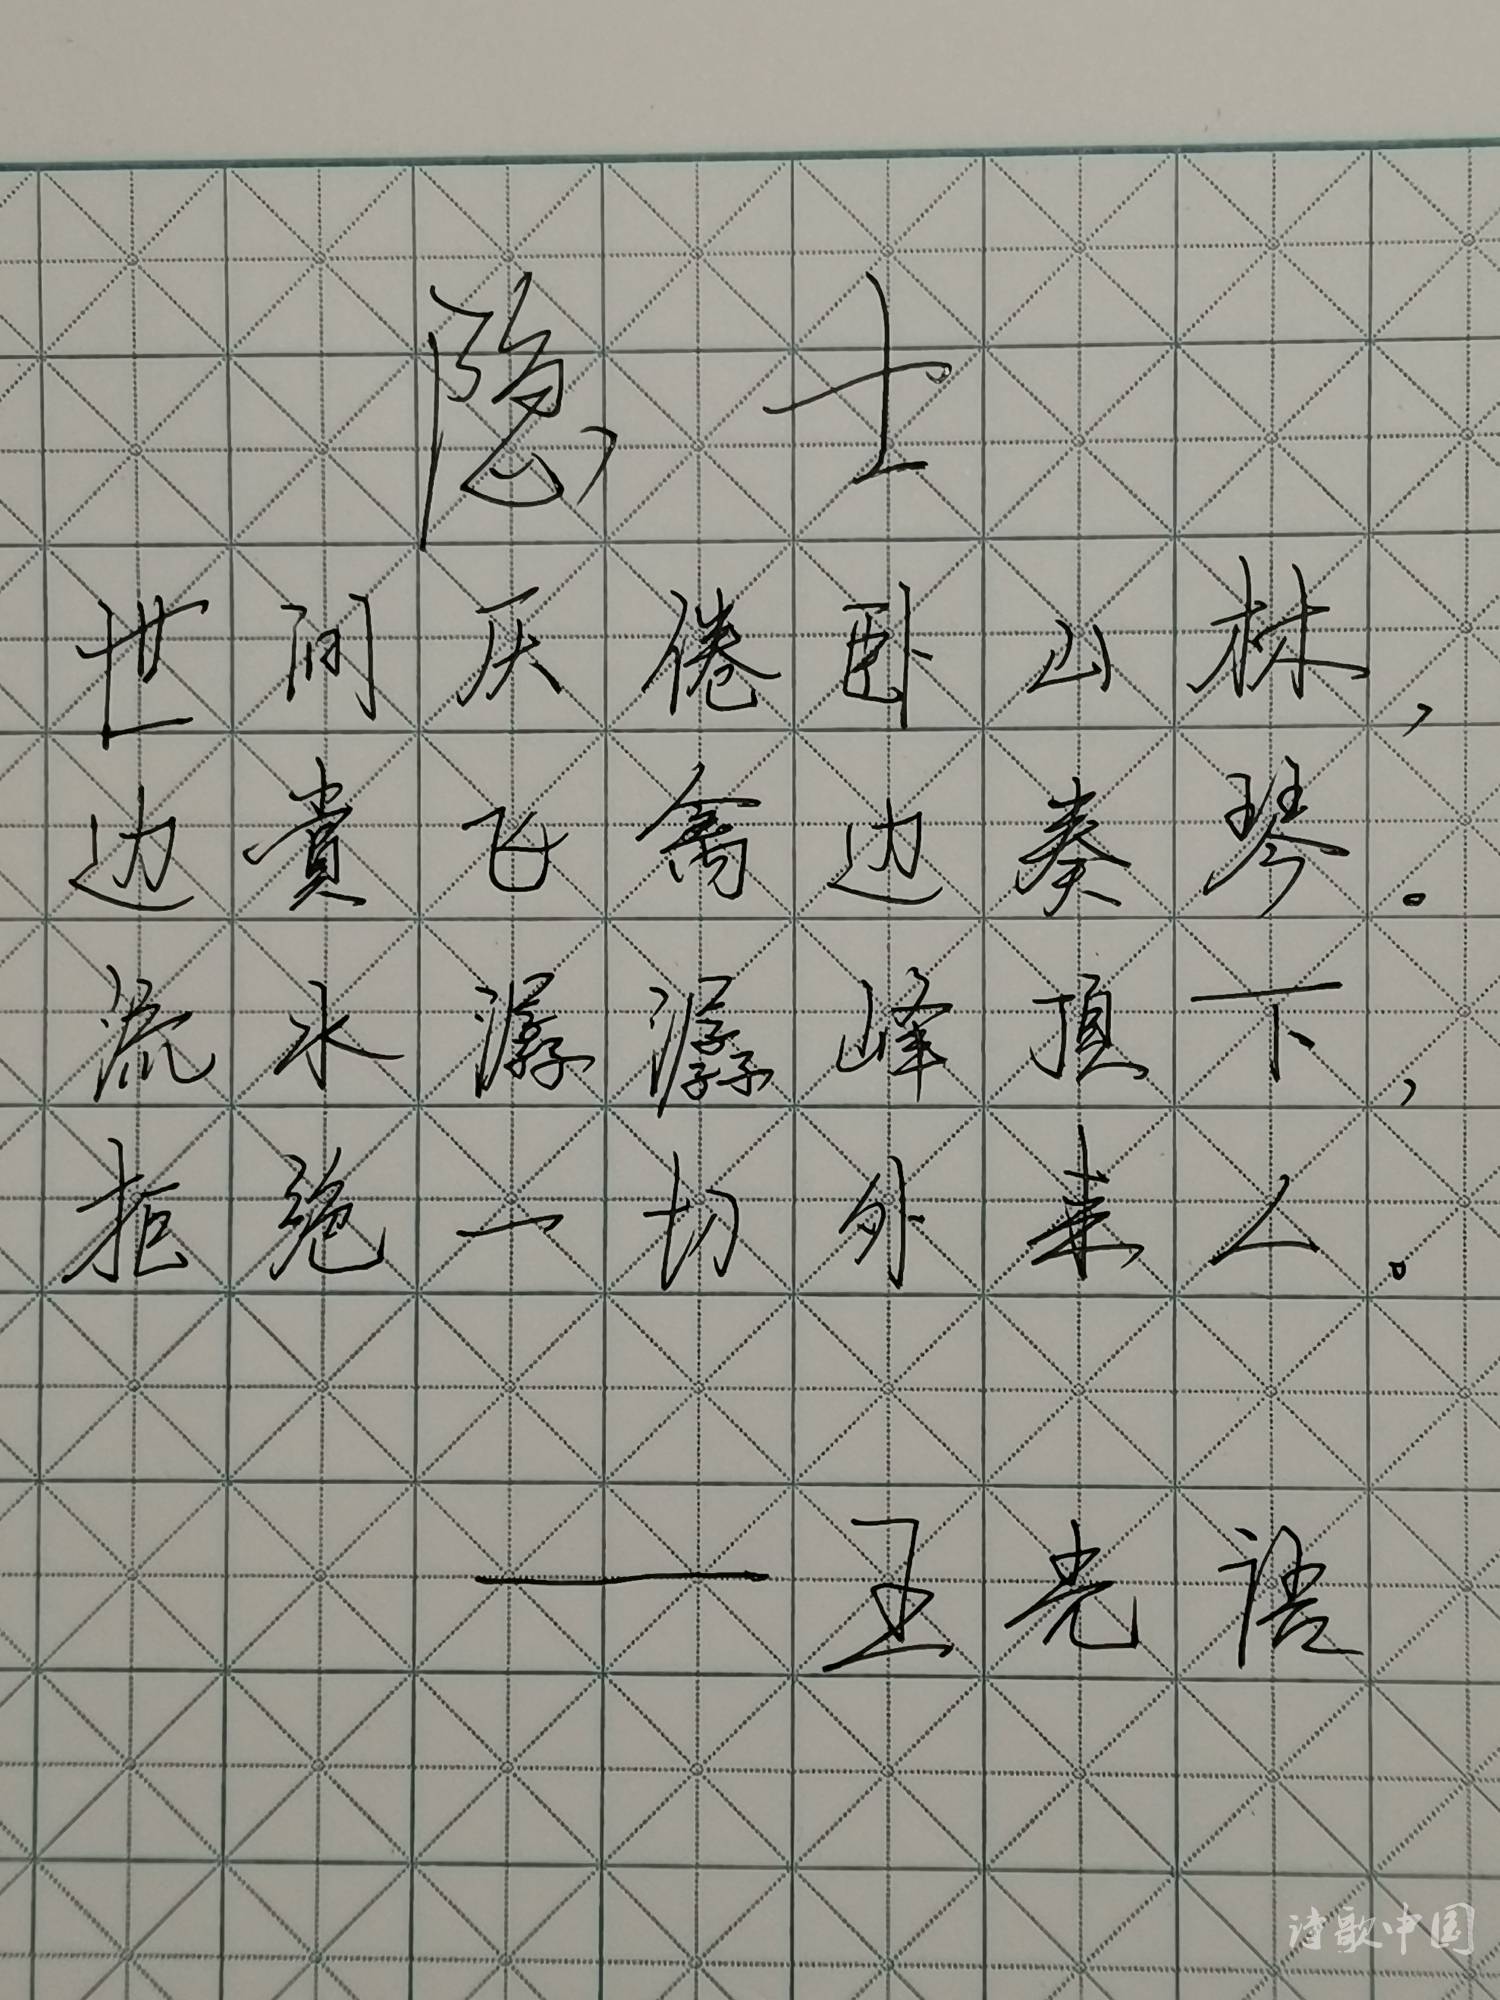 隐士
世间厌倦卧山林,
边賞飞禽边奏琴。
流水潺潺峰頂下,
拒绝一切外来人。
——王光语
诗歌中国